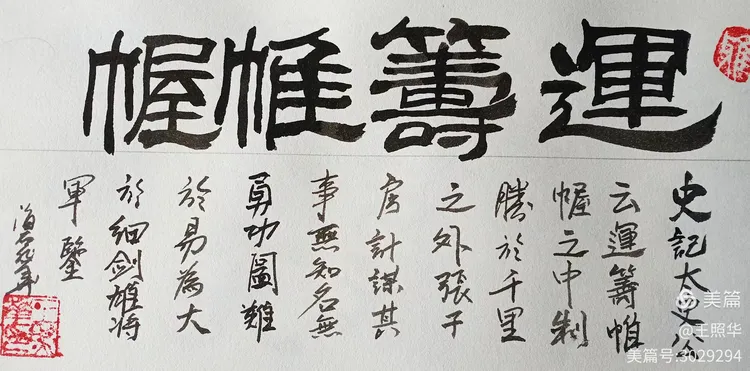 運籌帷幄
史記太史公
云運籌帷
幄之中制
勝於千里
之外張子
房計謀其
事無知名無
勇功圖難
於易為大
於細劍雄將
軍鑒
美篇
@王照华
美篇号:3029294